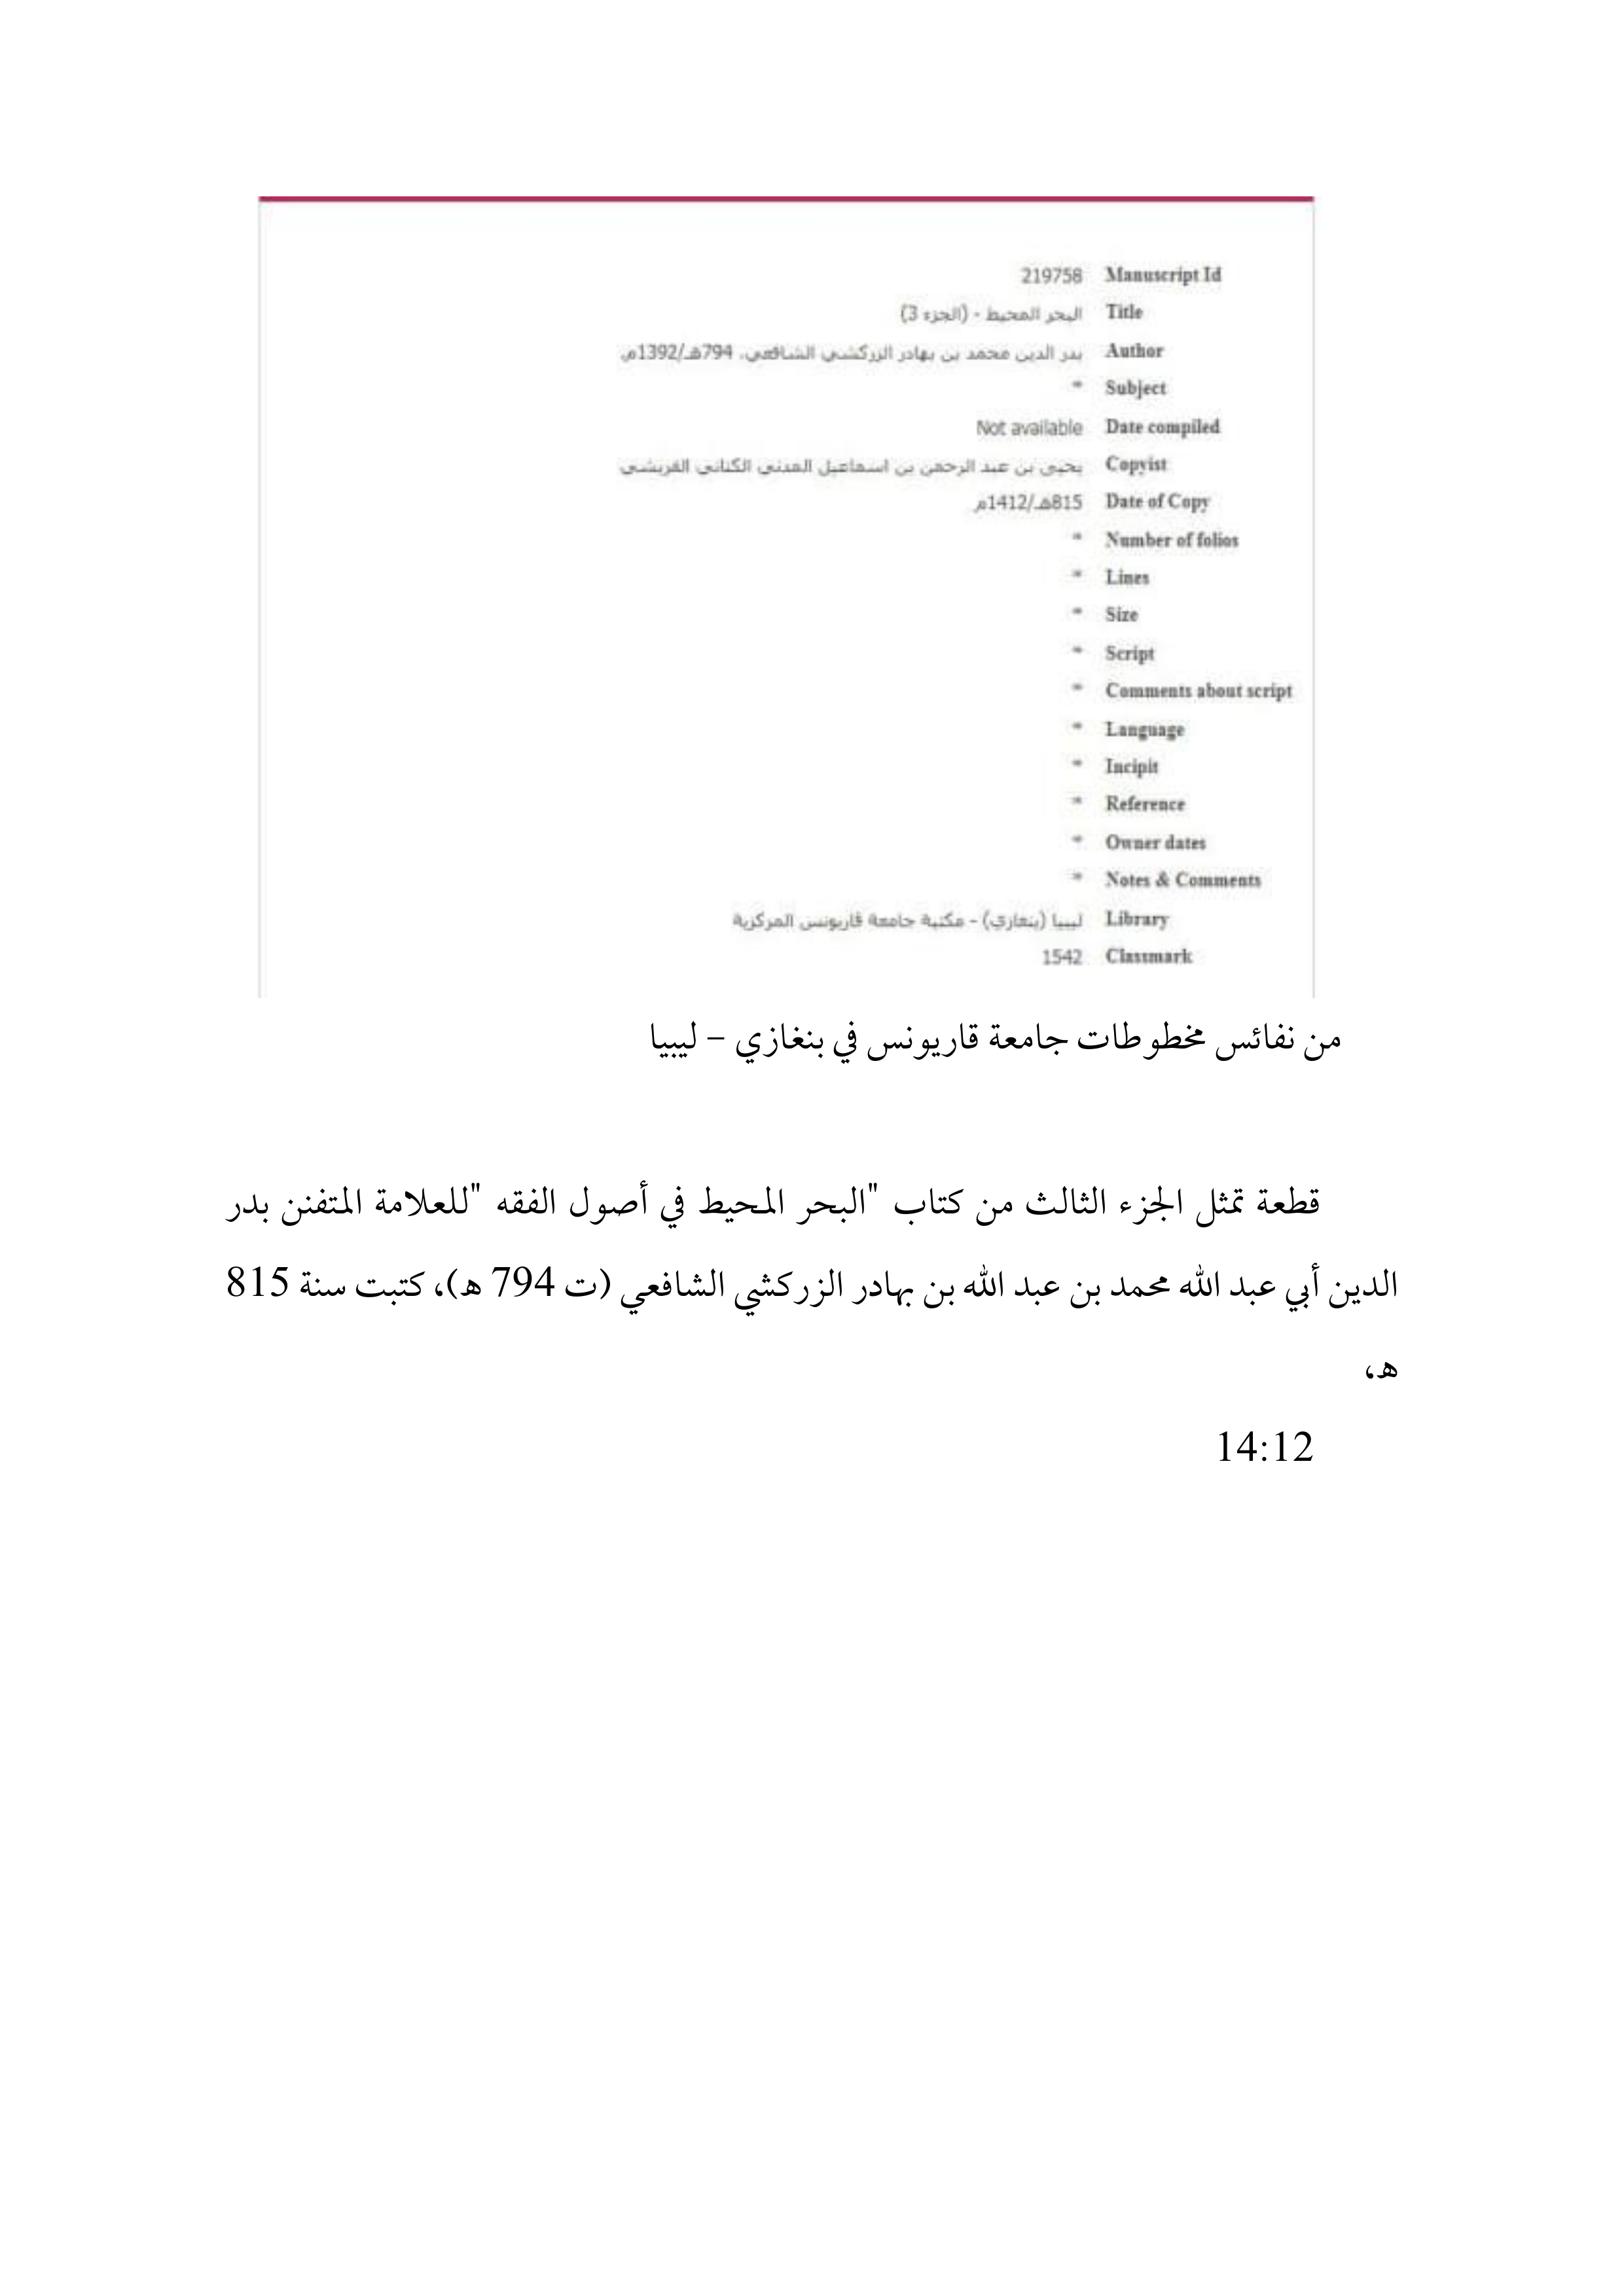 Manuscript Id 219758
Title البحر المحيط - (الجزء 3)
Author بدر الدين محمد بن بهادر الزركشي الشافعي، 794هـ/1392م.
Subject *
Date compiled Not available
Copyist يحيى بن عبد الرحمن بن اسماعيل المدني الكناني القريشي
Date of Copy 815هـ/1412م
Number of folios *
Lines *
Size *
Script *
Comments about script *
Language *
Incipit *
Reference *
Owner dates *
Notes & Comments *
Library ليبيا (بنغازي) - مكتبة جامعة قاريونس المركزية
Classmark 1542
من نفائس مخطوطات جامعة قاريونس في بنغازي – ليبيا
قطعة تمثل الجزء الثالث من كتاب "البحر المحيط في أصول الفقه "للعلامة المتفنن بدر
الدين أبي عبد الله محمد بن عبد الله بن بهادر الزركشي الشافعي (ت 794 ه)، كتبت سنة 815
ه،
14:12